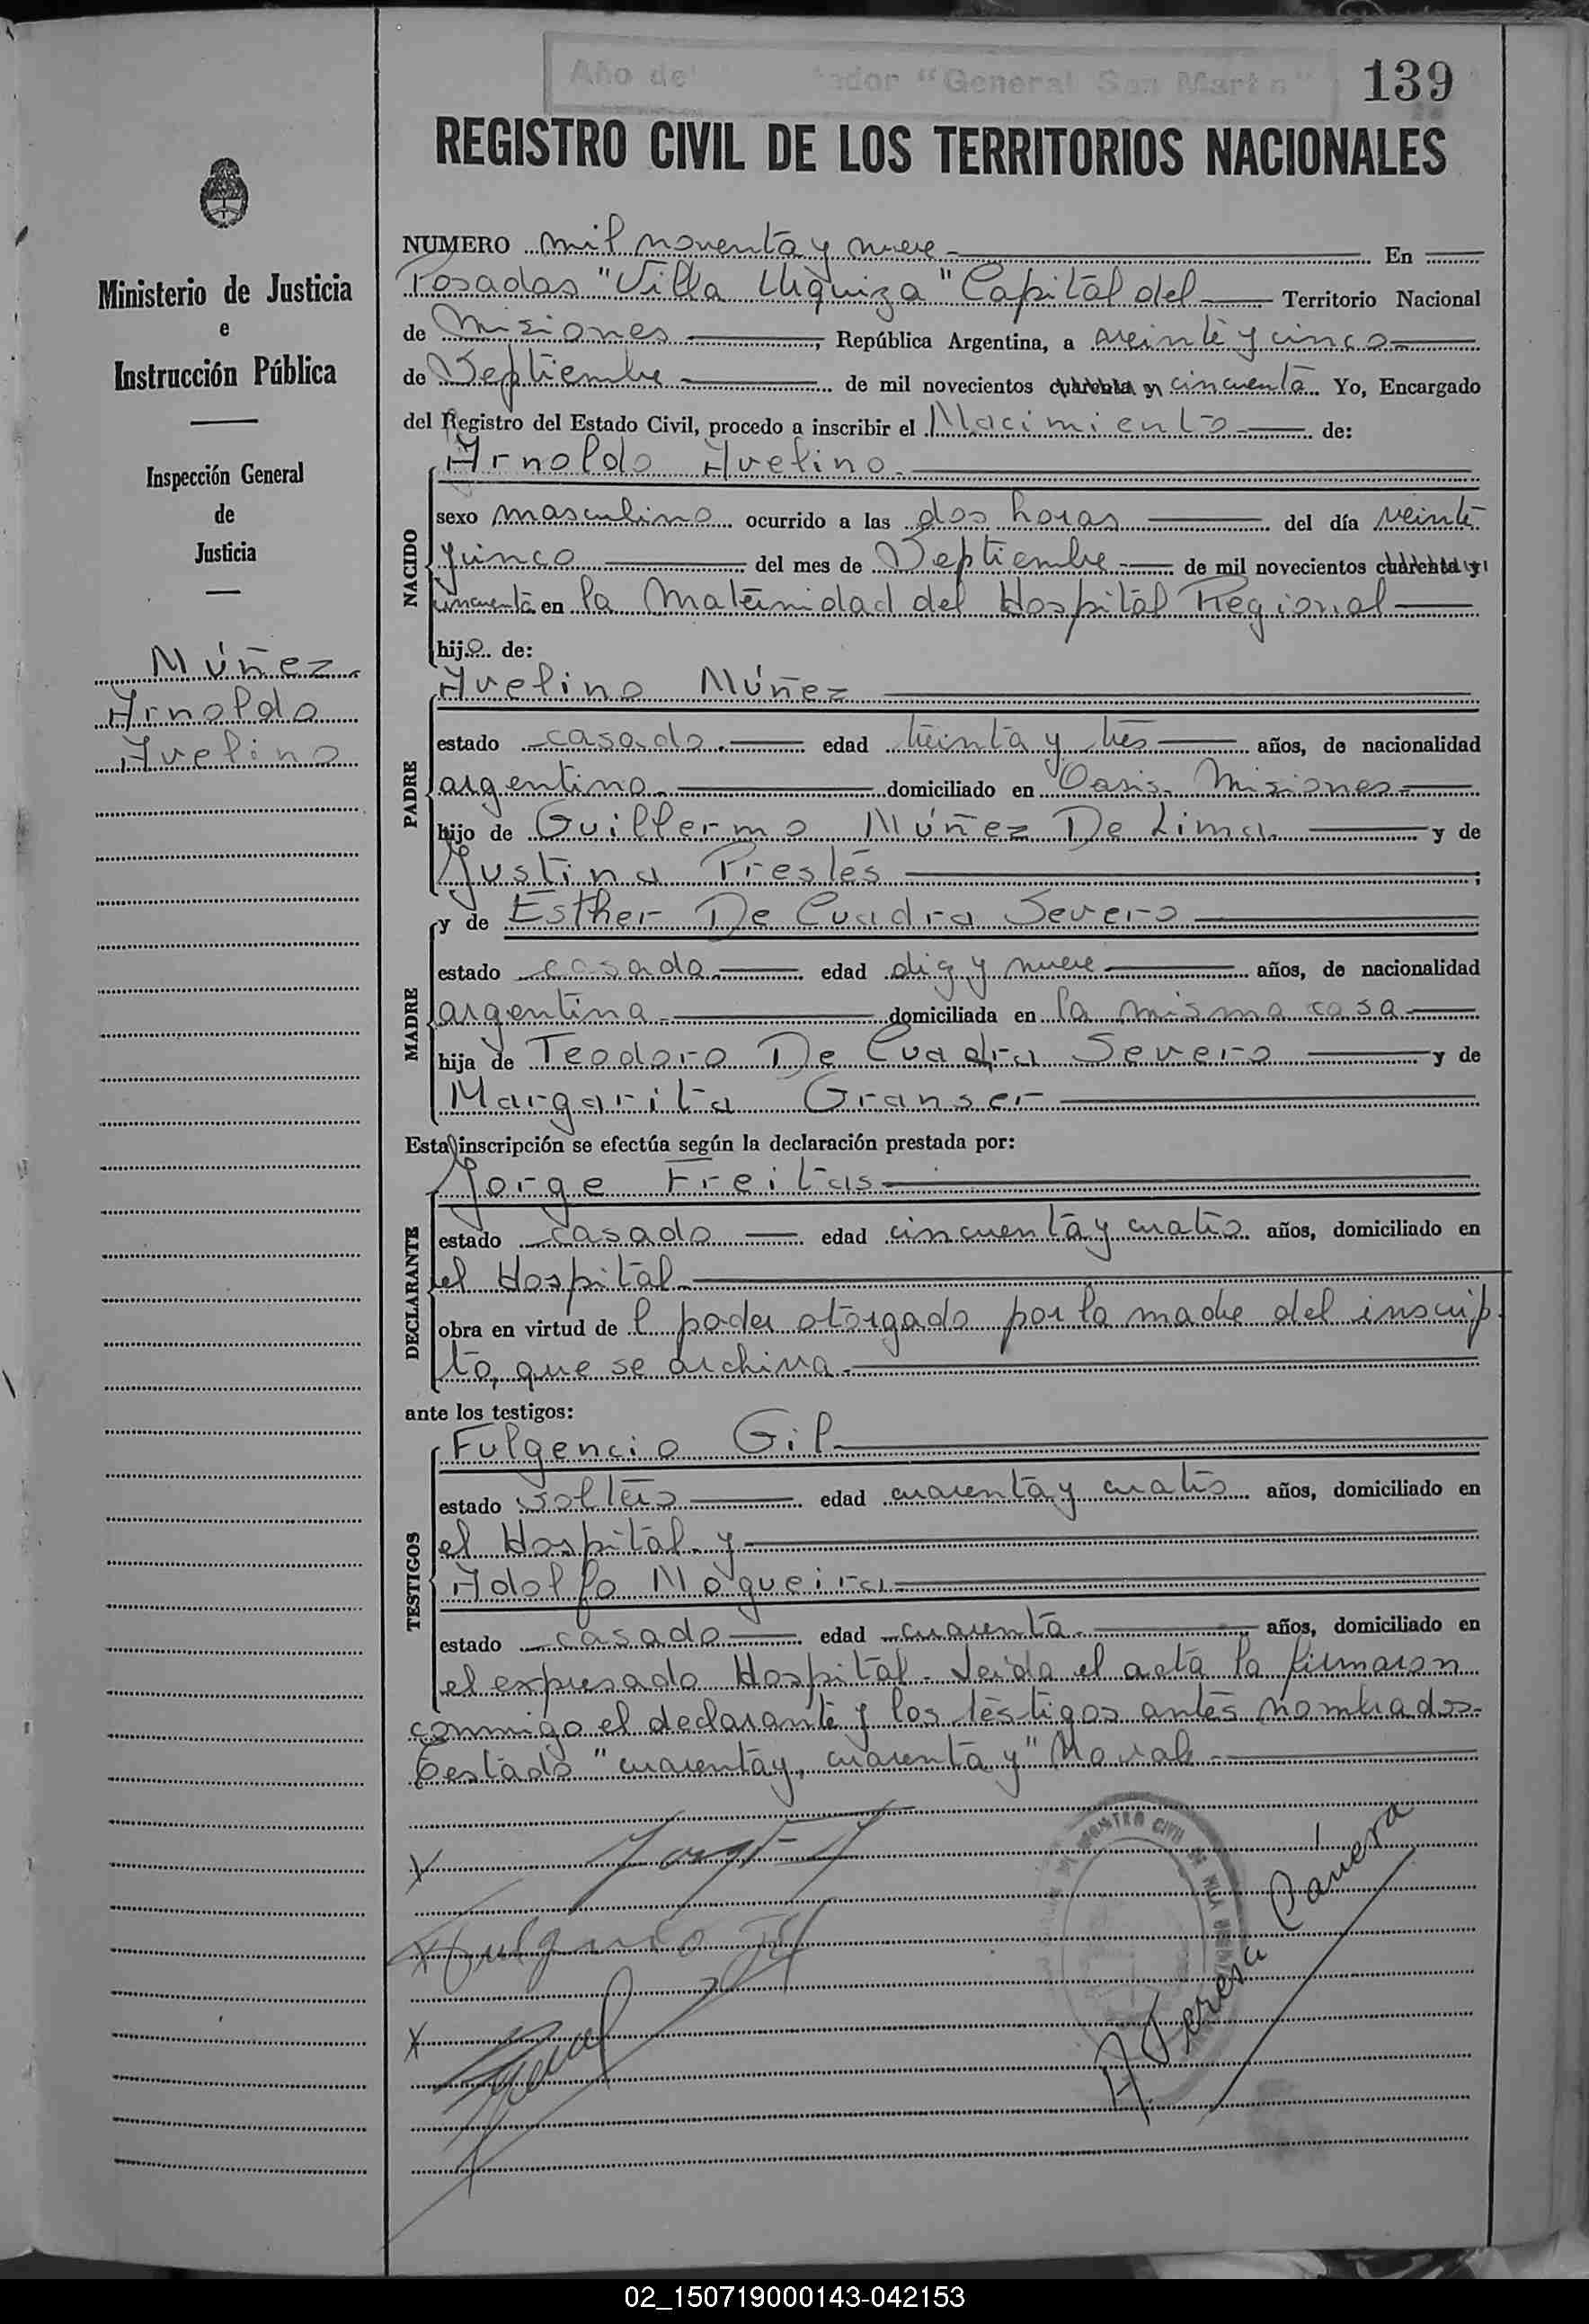 Año de ador "General San Martin"
139
REGISTRO CIVIL DE LOS TERRITORIOS NACIONALES
Ministerio de Justicia
e
Instrucción Pública
Inspección General
de
Justicia
Múñez
Arnoldo
Avelino
NUMERO mil noventa y nueve En
Posadas "Villa Urquiza" Capital del Territorio Nacional
de Misiones, República Argentina, a veinte y cinco
de Septiembre de mil novecientos cuarenta y cincuenta Yo, Encargado
del Registro del Estado Civil, procedo a inscribir el Nacimiento de:
Arnoldo Avelino
NACIDO
sexo masculino ocurrido a las dos horas del día veinte
y cinco del mes de Septiembre de mil novecientos cuarenta y
cincuenta en la Maternidad del Hospital Regional
hijo de:
PADRE
Avelino Múñez
estado casado. edad treinta y tres años, de nacionalidad
argentino. domiciliado en Oasis. Misiones.
hijo de Guillermo Múñez De Lima. y de
Justina Prestes;
MADRE
y de Esther De Cuadra Severo
estado casada. edad diez y nueve años, de nacionalidad
argentina. domiciliada en la misma casa
hija de Teodoro De Cuadra Severo y de
Margarita Granser
Esta inscripción se efectúa según la declaración prestada por:
DECLARANTE
Jorge Freitas
estado casado edad cincuenta y cuatro años, domiciliado en
el Hospital.
obra en virtud de l poder otorgado por la madre del inscrip
to, que se archiva.
ante los testigos:
TESTIGOS
Fulgencio Gil
estado soltero edad cuarenta y cuatro años, domiciliado en
el Hospital y
Adolfo Nogueira
estado casado edad cuarenta. años, domiciliado en
el expresado Hospital. Leida el acta la firmaron
conmigo el declarante y los testigos antes nombrados.
Testado "cuarenta y, cuarenta y" No vale.
Fulgencio Gil
A. Teresa
REGISTRO CIVIL
02_150719000143-042153